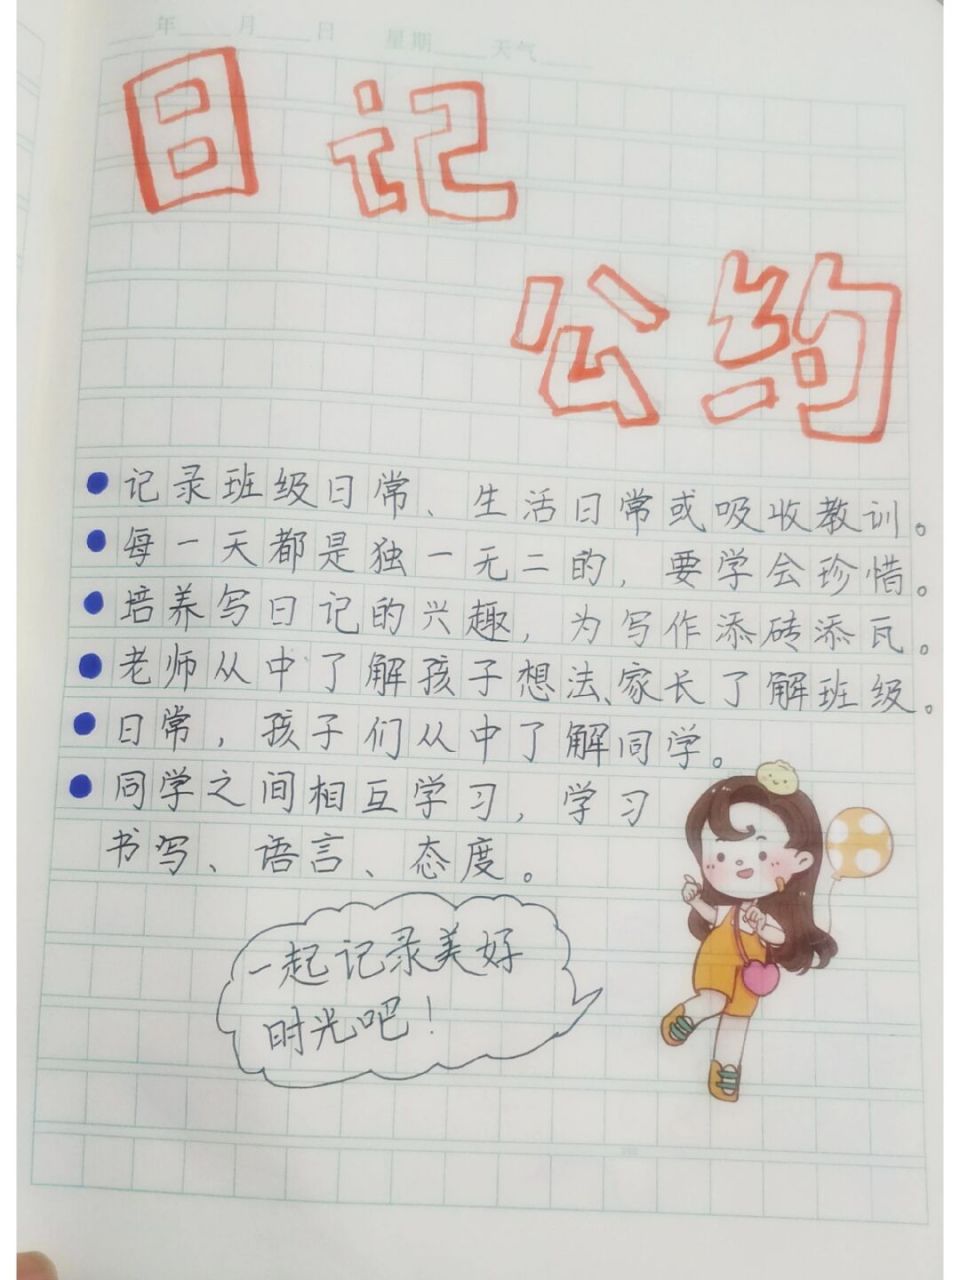 年 月 日 星期 天气
日记
公约
记录班级日常、生活日常或吸收教训。
每一天都是独一无二的，要学会珍惜。
培养写日记的兴趣，为写作添砖添瓦。
老师从中了解孩子想法、家长了解班级。
日常，孩子们从中了解同学。
同学之间相互学习，学习
书写、语言、态度。
一起记录美好
时光吧！